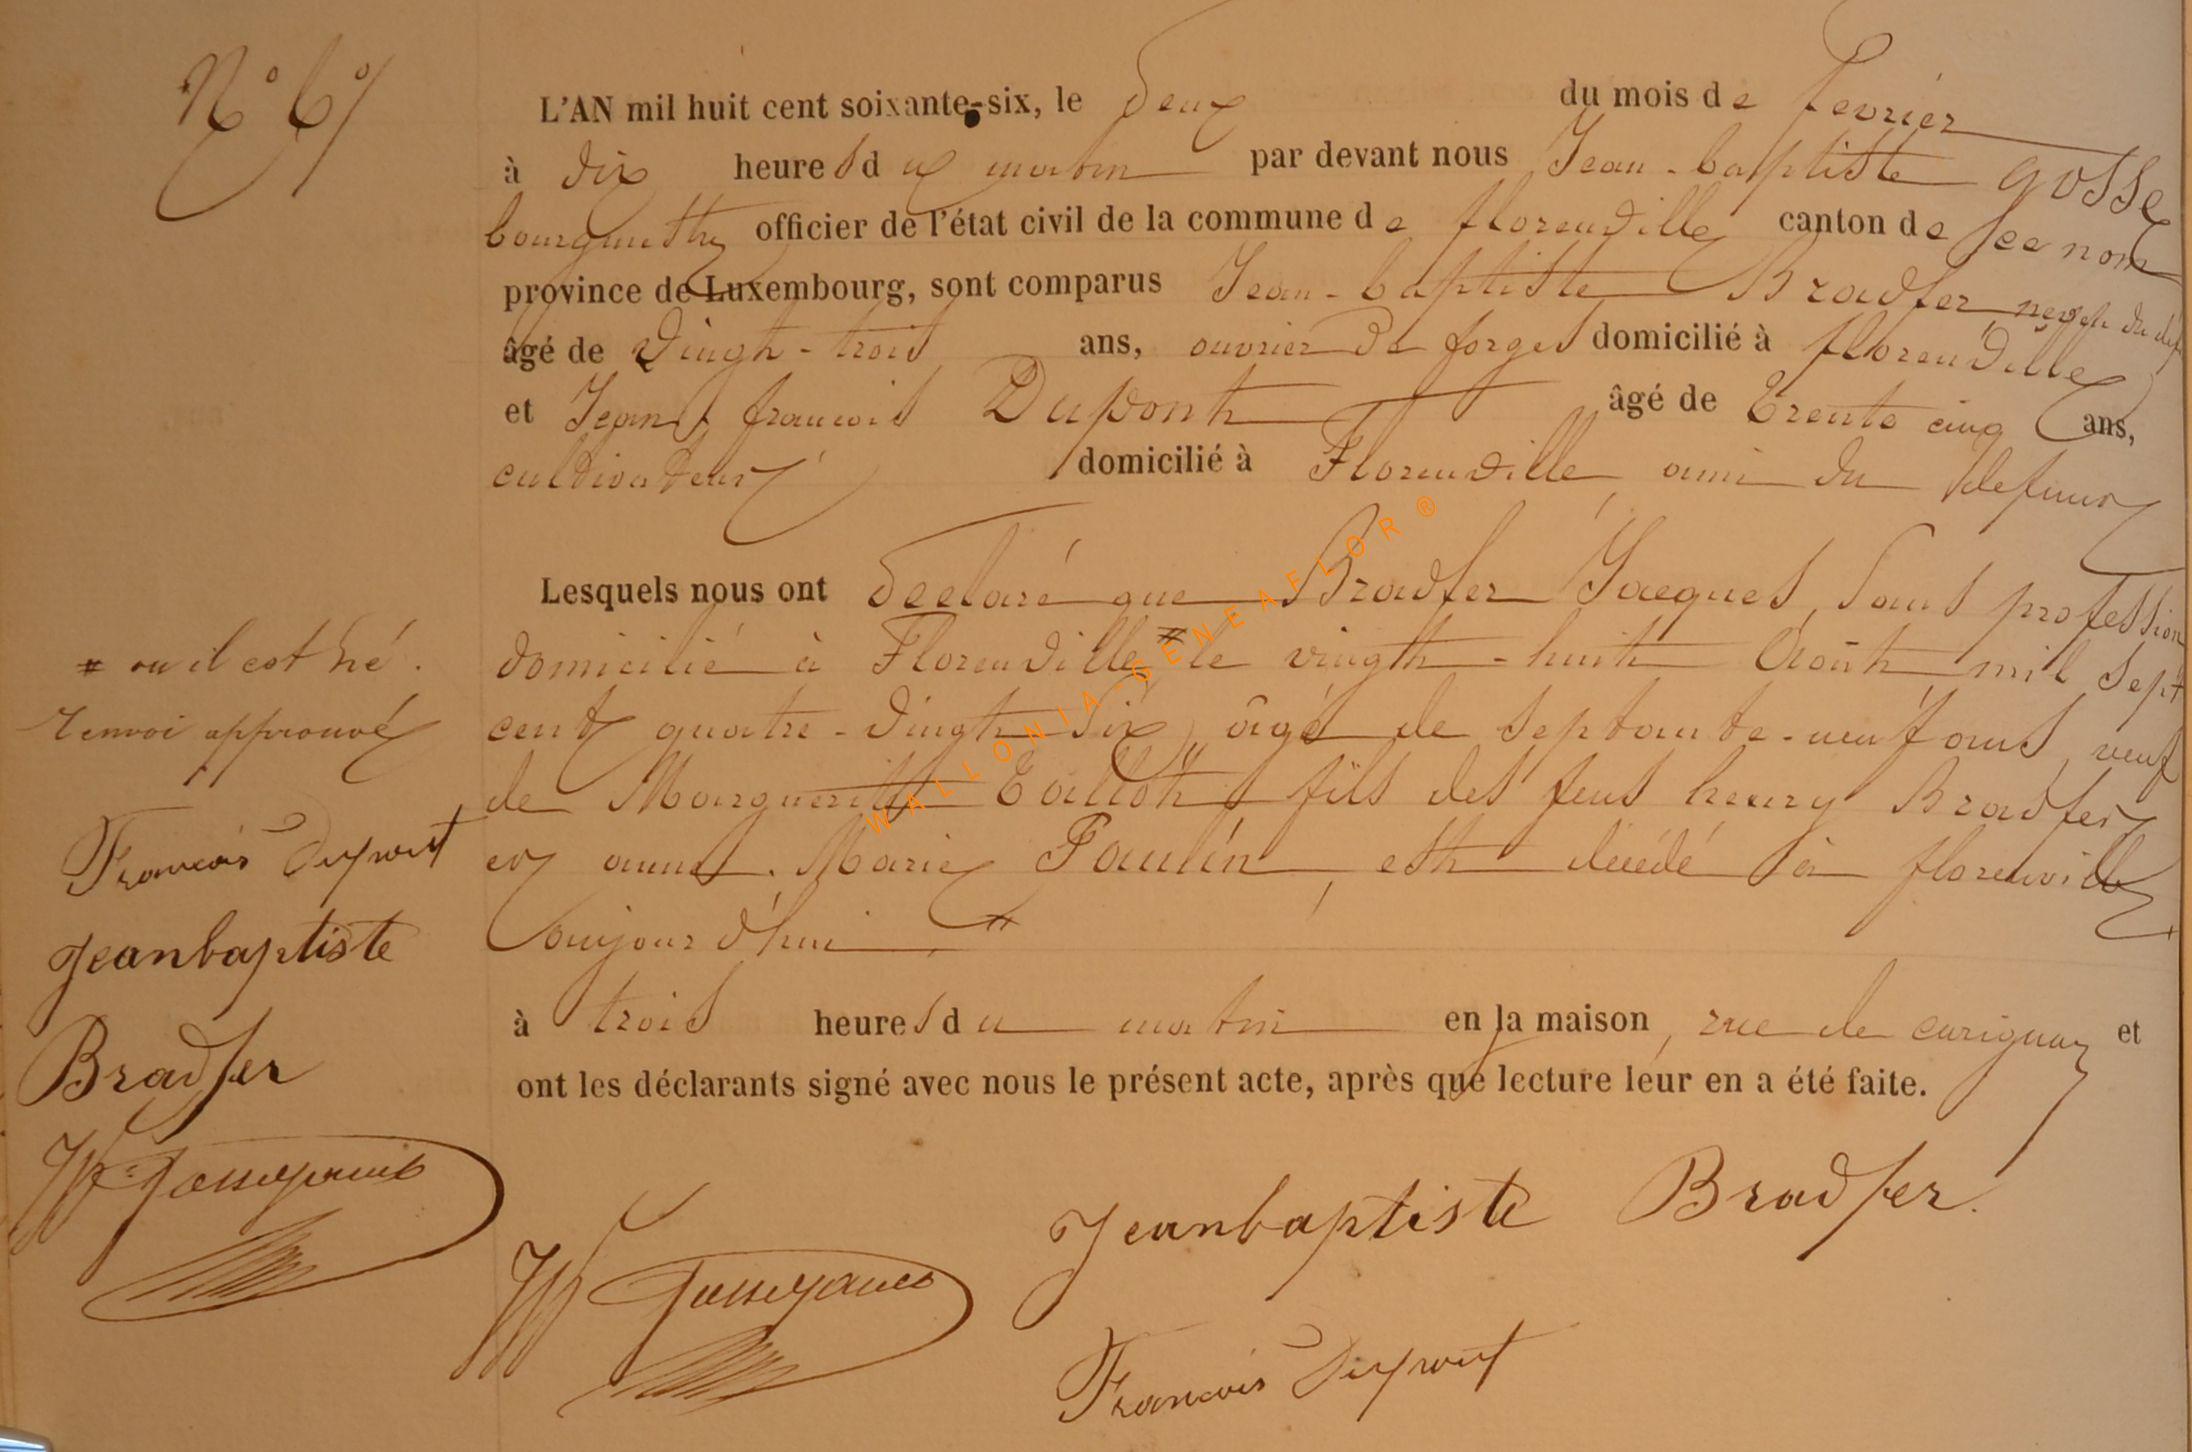 N° 6 %
L'AN mil huit cent soixante-six, le deux du mois de fevrier
à dix heures du matin par devant nous Jean-baptiste gosse
bourgmestre officier de l'état civil de la commune de florenville canton de ce nom
province de Luxembourg, sont comparus Jean-baptiste Bradfer neveu du def
âgé de vingt-trois ans, ouvrier de forges domicilié à florenville
et Jean francois Dupont âgé de trente cinq ans,
cultivateur domicilié à Florenville ami du defunt
Lesquels nous ont declaré que Bradfer Jacques, sans profession
domicilié à Florenville # le vingt-huit Août mil sept
cent quatre-vingt six, âgé de septante-neuf ans, veuf
de Marguerite fils des feus henry Bradfer
et anne. Marie Paulin, est décédé à florenville
aujourd'hui
à trois heures du matin en la maison, rue de carignan et
ont les déclarants signé avec nous le présent acte, après que lecture leur en a été faite.
# ou il est né.
renvoi approuvé
Francois Dupont
Jeanbaptiste
Bradfer
Jeanbaptiste Bradfer.
Francois Dupont
WALLONIA-GENEAFLOR®